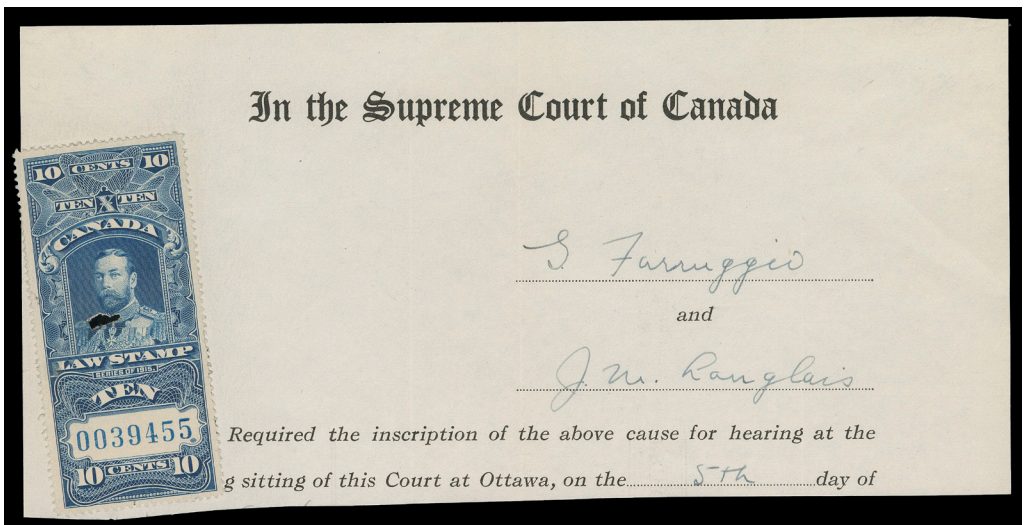 In the Supreme Court of Canada
10 CENTS 10
TEN X TEN
CANADA
LAW STAMP
SERIES OF 1915.
TEN
0039455
10 CENTS 10
S. Farruggio
and
J. M. Langlais
Required the inscription of the above cause for hearing at the
g sitting of this Court at Ottawa, on the 5th day of